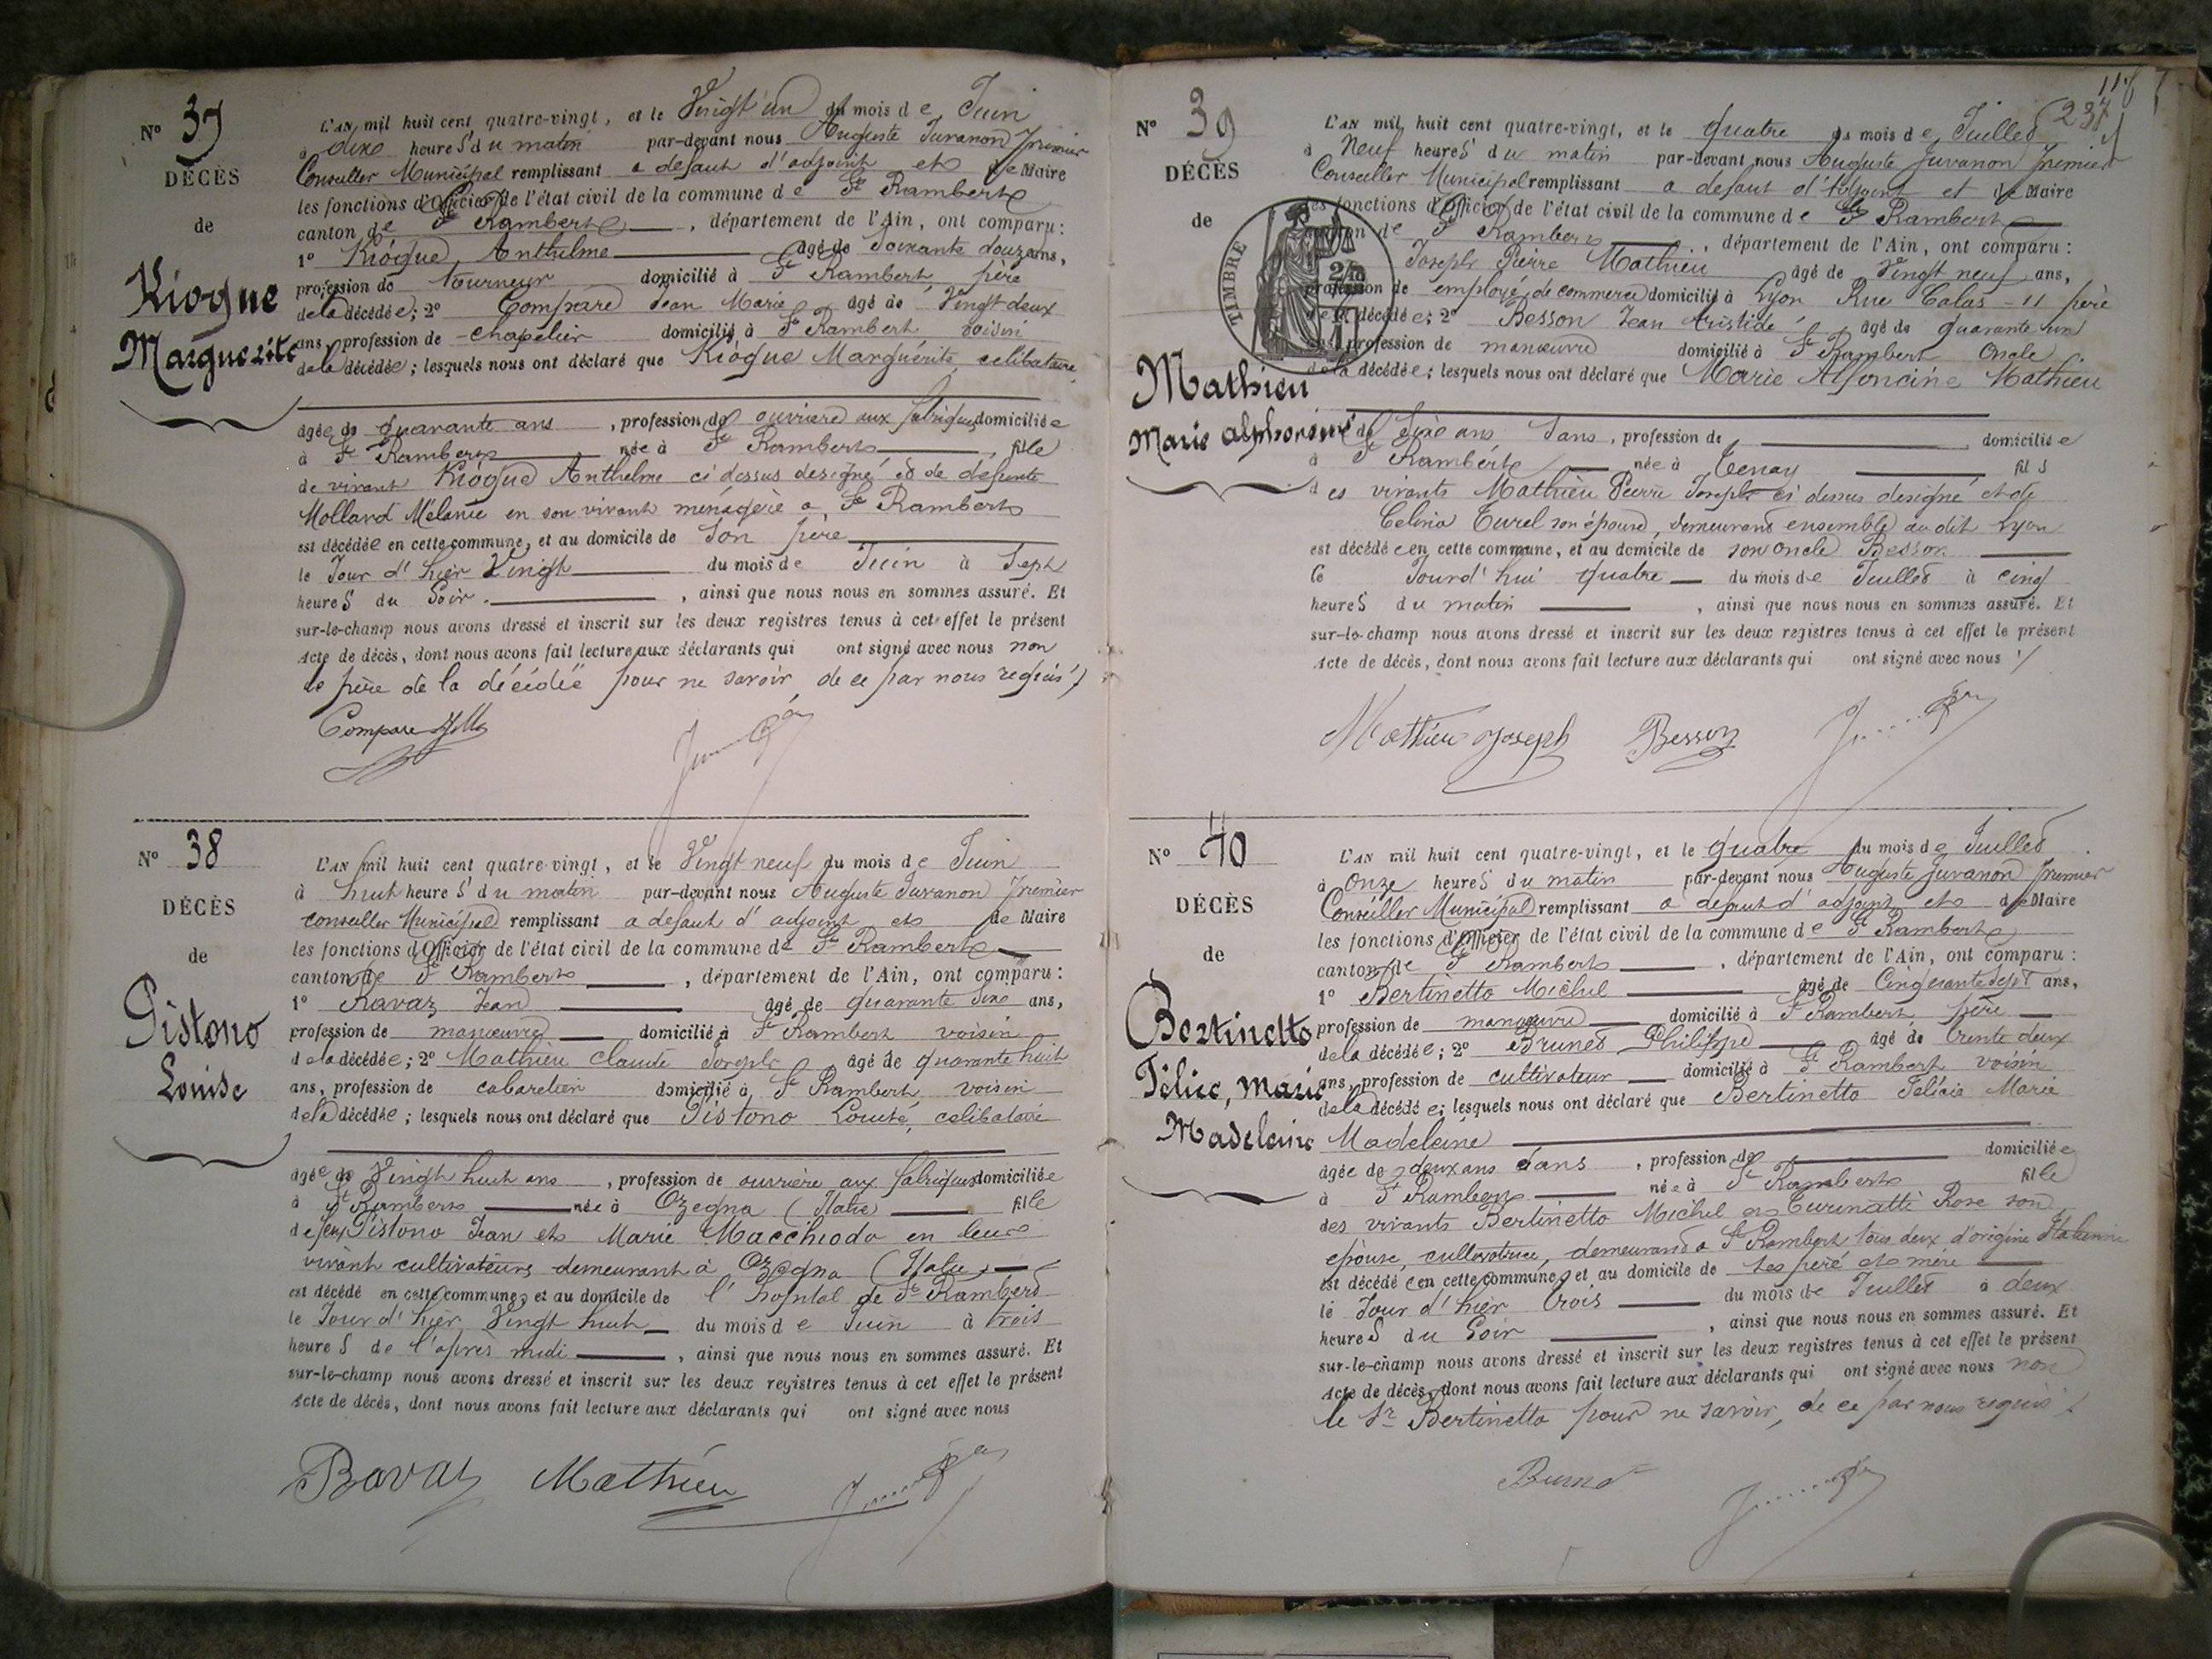 N° 37
DÉCÈS
de
Kiogue
Marguerite
L'AN mil huit cent quatre-vingt, et le Vingt un du mois de Juin
à dixe heureS du matin par-devant nous Auguste Juvanon Premier
Conseiller Municipal remplissant a defaut d'adjoint et de Maire
les fonctions d'Officier de l'état civil de la commune de St Rambert
canton de St Rambert, département de l'Ain, ont comparu:
1° Kiogue Anthelme âgé de Soixante douze ans,
profession de tourneur domicilié à St Rambert, père
de la décédée; 2° Compare Jean Marie âgé de Vingt deux
ans, profession de chapelier domicilié à St Rambert, voisin
de la décédée; lesquels nous ont déclaré que Kiogue Marguérite, celibataire,
âgée de quarante ans, profession de ouvriere aux fabriques domiciliée
à St Rambert née à St Rambert, fille
de vivant Kiogue Anthelme ci dessus designé et de defunte
Mollard Mélanie en son vivant ménagère a St Rambert
est décédée en cette commune, et au domicile de Son père
le Jour d'hier Vingt du mois de Juin à Sept
heureS du Soir, ainsi que nous nous en sommes assuré. Et
sur-le-champ nous avons dressé et inscrit sur les deux registres tenus à cet effet le présent
Acte de décès, dont nous avons fait lecture aux déclarants qui ont signé avec nous non
le père de la décédée pour ne savoir, de ce par nous requis
Compare
N° 38
DÉCÈS
de
Pistono
Louise
L'AN mil huit cent quatre-vingt, et le Vingt neuf du mois de Juin
à huit heureS du matin par-devant nous Auguste Juvanon Premier
conseiller Municipal remplissant a defaut d'adjoint et de Maire
les fonctions d'Officier de l'état civil de la commune de St Rambert
canton de St Rambert, département de l'Ain, ont comparu:
1° Ravaz Jean âgé de quarante Sixe ans,
profession de manœuvre domicilié à St Rambert voisin
de la décédée; 2° Mathieu Claude Joseph âgé de quarante huit
ans, profession de cabaretier domicilié à St Rambert, voisin
de la décédée; lesquels nous ont déclaré que Pistono Louise, celibataire
âgée de Vingt huit ans, profession de ouvrière aux fabriques domiciliée
à St Rambert née à Ozegna (Italie) fille
de feu Pistono Jean et Marie Macchiodo en leur
vivant cultivateurs demeurant à Ozegna (Italie)
est décédé en cette commune, et au domicile de l'hopital de St Rambert
le Jour d'hier Vingt huit du mois de Juin à trois
heureS de l'après midi, ainsi que nous nous en sommes assuré. Et
sur-le-champ nous avons dressé et inscrit sur les deux registres tenus à cet effet le présent
Acte de décès, dont nous avons fait lecture aux déclarants qui ont signé avec nous
Ravaz Mathieu
237
N° 39
DÉCÈS
de
TIMBRE
Mathieu
Marie Alphonsine
L'AN mil huit cent quatre-vingt, et le quatre du mois de Juillet
à Neuf heureS du matin par-devant nous Auguste Juvanon Premier
Conseiller Municipal remplissant a defaut d'Adjoint et de Maire
les fonctions d'Officier de l'état civil de la commune de St Rambert
canton de St Rambert, département de l'Ain, ont comparu:
Joseph Pierre Mathieu âgé de Vingt neuf ans,
profession de employé de commerce domicilié à Lyon Rue Calas - 11 père
de la décédée; 2° Besson Jean Aristide âgé de quarante un
ans, profession de manœuvre domicilié à St Rambert Oncle
de la décédée; lesquels nous ont déclaré que Marie Alfoncine Mathieu
de Sixe ans Sans, profession de domiciliée
à St Rambert née à Tenay fil s
des vivants Mathieu Pierre Joseph ci dessus designé et de
Celina Turel son épouse, demeurant ensemble au dit Lyon
est décédée en cette commune, et au domicile de son oncle Besson
le Jourd'hui quatre du mois de Juillet à cinq
heureS du matin, ainsi que nous nous en sommes assuré. Et
sur-le-champ nous avons dressé et inscrit sur les deux registres tenus à cet effet le présent
Acte de décès, dont nous avons fait lecture aux déclarants qui ont signé avec nous
Mathieu Joseph Besson
N° 40
DÉCÈS
de
Bertinetto
Félicie, Marie
Madeleine
L'AN mil huit cent quatre-vingt, et le quatre du mois de Juillet
à Onze heureS du matin par-devant nous Auguste Juvanon Premier
Conseiller Municipal remplissant a defaut d'adjoint et de Maire
les fonctions d'Officier de l'état civil de la commune de St Rambert
canton de St Rambert, département de l'Ain, ont comparu:
1° Bertinetto Michel âgé de Cinquante Sept ans,
profession de manœuvre domicilié à St Rambert père
de la décédée; 2° Brunet Philippe âgé de trente deux
ans, profession de cultivateur domicilié à St Rambert voisin
de la décédée; lesquels nous ont déclaré que Bertinetto Félicie Marie
Madeleine
âgée de deux ans Sans, profession de domiciliée
à St Rambert née à St Rambert fille
des vivants Bertinetto Michel et Turinatti Rose son
epouse, cultivatrice, demeurant a St Rambert tous deux d'origine Italienne
est décédée en cette commune, et au domicile de Ses père et mère
le Jour d'hier trois du mois de Juillet à deux
heureS du Soir, ainsi que nous nous en sommes assuré. Et
sur-le-champ nous avons dressé et inscrit sur les deux registres tenus à cet effet le présent
Acte de décès, dont nous avons fait lecture aux déclarants qui ont signé avec nous non
le Sr Bertinetto pour ne savoir, de ce par nous requis